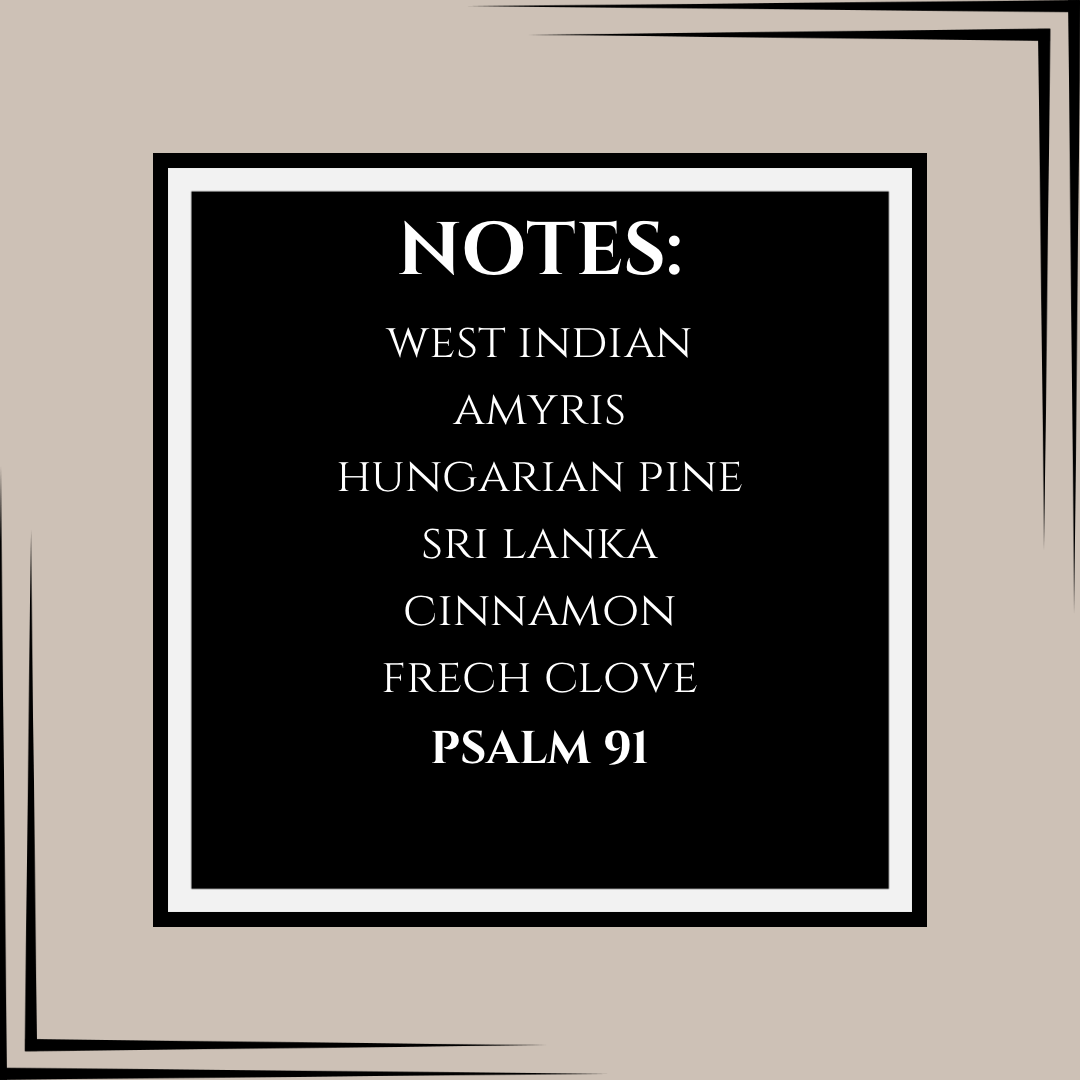 NOTES:
WEST INDIAN
AMYRIS
HUNGARIAN PINE
SRI LANKA
CINNAMON
FRECH CLOVE
PSALM 91